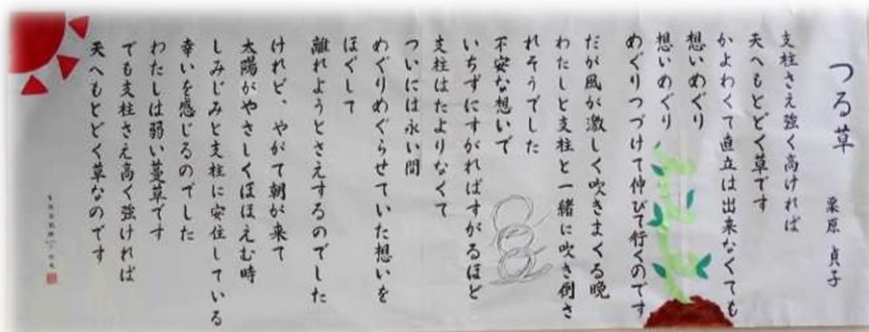 つる草
栗原 貞子
支柱さえ強く高ければ
天へもとどく草です
かよわくて直立は出来なくても
想いめぐり
想いめぐり
めぐりつづけて伸びて行くのです
だが風が激しく吹きまくる晩
わたしと支柱と一緒に吹き倒さ
れそうでした
不安な想いで
いちずにすがればすがるほど
支柱はたよりなくて
ついには永い間
めぐりめぐらせていた想いを
ほぐして
離れようとさえするのでした
けれど、やがて朝が来て
太陽がやさしくほほえむ時
しみじみと支柱に安住している
幸いを感じるのでした
わたしは弱い蔓草です
でも支柱さえ高く強ければ
天へもとどく草なのです